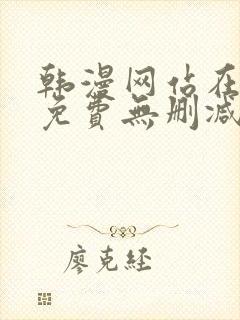 韩漫网站在
免費無删减
廖克经